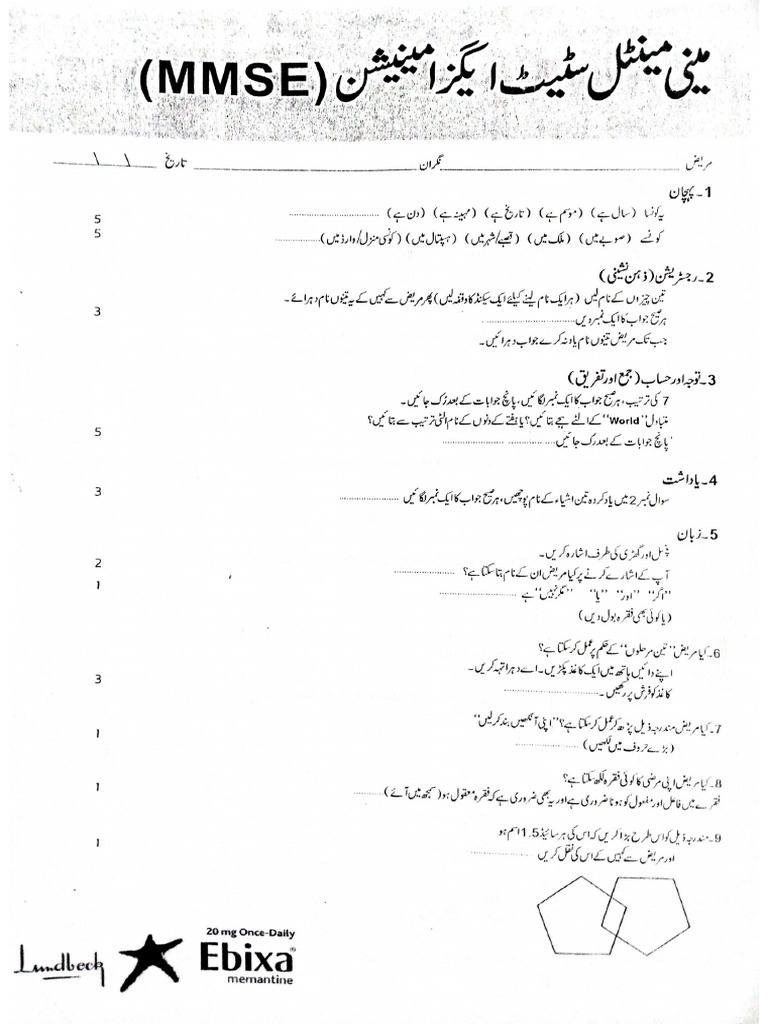 مینی مینٹل سٹیٹ ایگزامینیشن (MMSE)
مریض ________ نگران ________ تاریخ __\__\__
1۔ پہچان
یہ کونسا (سال ہے) (موسم ہے) (تاریخ ہے) (مہینہ ہے) (دن ہے) .............. 5
کونسے (صوبے میں) (ملک میں) (قصبے/شہر میں) (ہسپتال میں) (کونسی منزل/وارڈ میں) .............. 5
2۔ رجسٹریشن (ذہن نشینی)
تین چیزوں کے نام لیں (ہر ایک نام لینے کیلئے ایک سیکنڈ کا وقفہ لیں) پھر مریض سے کہیں کے یہ تینوں نام دہرائے۔
ہر صحیح جواب کا ایک نمبر دیں .............. 3
جب تک مریض تینوں نام یاد نہ کرے جواب دہرائیں۔
3۔ توجہ اور حساب (جمع اور تفریق)
7 کی ترتیب، ہر صحیح جواب کا ایک نمبر لگائیں، پانچ جوابات کے بعد رُک جائیں۔
متبادل "World" کے الٹے ہجے بتائیں؟ یا ہفتے کے دنوں کے نام الٹی ترتیب سے بتائیں؟
پانچ جوابات کے بعد رک جائیں .............. 5
4۔ یاداشت
سوال نمبر 2 میں یاد کردہ تین اشیاء کے نام پوچھیں، ہر صحیح جواب کا ایک نمبر لگائیں .............. 3
5۔ زبان
پنسل اور گھڑی کی طرف اشارہ کریں۔
آپ کے اشارے کرنے پر کیا مریض ان کے نام بتا سکتا ہے؟ .............. 2
"اگر" "اور" "یا" "مگر نہیں" ہے .............. 1
(یا کوئی بھی فقرہ بول دیں)
6۔ کیا مریض "تین مرحلوں" کے حکم پر عمل کر سکتا ہے؟
اپنے دائیں ہاتھ میں ایک کاغذ پکڑیں۔ اسے دہرا تہہ کریں۔
کاغذ کو فرش پر رکھیں۔ .............. 3
7۔ کیا مریض مندرجہ ذیل پڑھ کر عمل کر سکتا ہے؟ "اپنی آنکھیں بند کر لیں"
(بڑے حروف میں لکھیں) .............. 1
8۔ کیا مریض اپنی مرضی کا کوئی فقرہ لکھ سکتا ہے؟
فقرے میں فاعل اور مفعول کو ہونا ضروری ہے اور یہ بھی ضروری ہے کہ فقرہ معقول ہو (سمجھ میں آئے) .............. 1
9۔ مندرجہ ذیل کو اس طرح بڑا کریں کہ اس کی ہر سائیڈ 1.5 اسم ہو
اور مریض سے کہیں کے اس کی نقل کریں .............. 1
Lundbeck
20 mg Once-Daily
Ebixa®
memantine